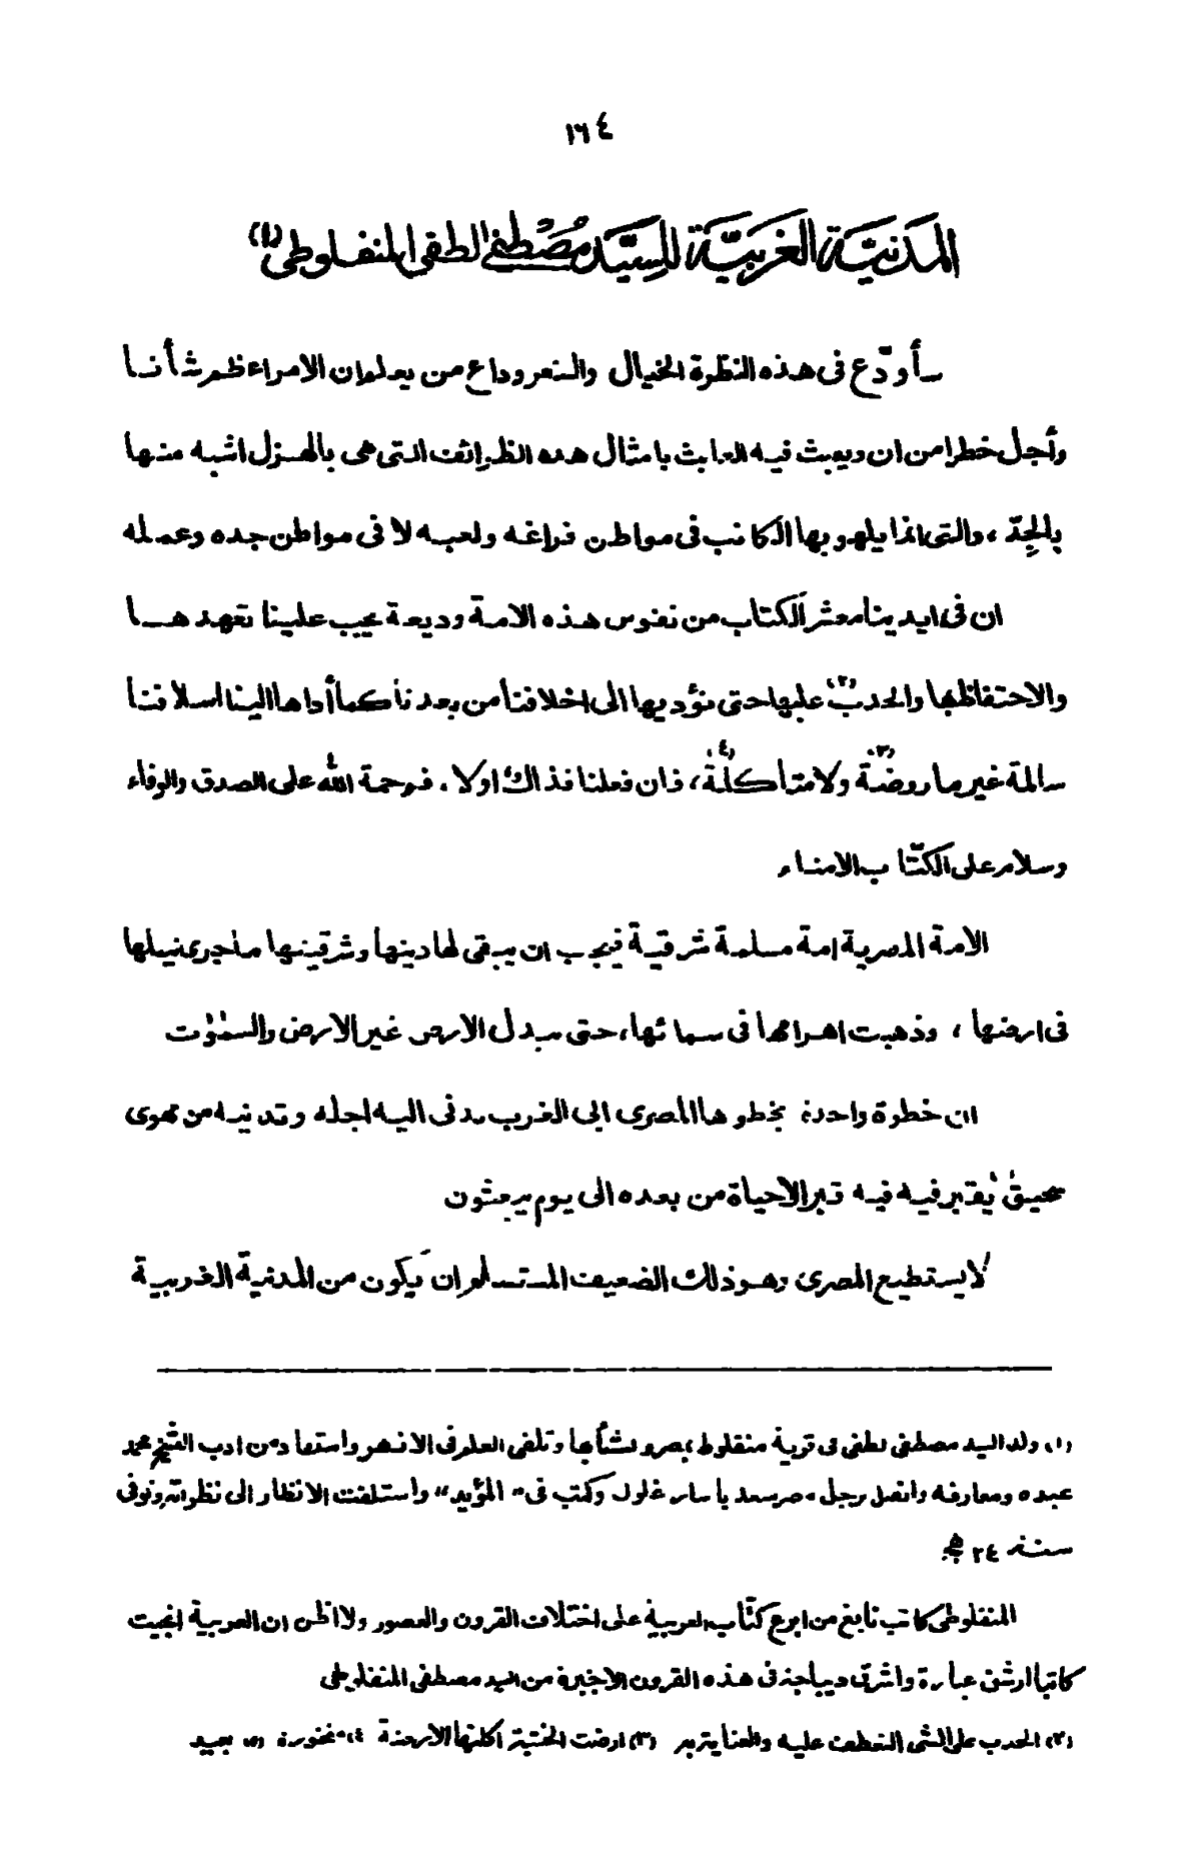 ١٦٤
المدنيّة الغربيّة للسيّد مصطفى لطفى المنفلوطى (١)
سأودّع فى هذه النظرة الخيال والشعر وداع من يعلم ان الامر اعظم شأنا
وأجل خطرا من ان يعبث فيه العابث بامثال هذه الظرائف التى هى بالهزل اشبه منها
بالجِدّ، والتى انما يلهو بها الكاتب فى مواطن فراغه ولعبه لا فى مواطن جده وعمله
ان فى ايدينا معشر الكتاب من نفوس هذه الامة وديعة يجب علينا تعهدها
والاحتفاظ بها والحدب (٢) عليها حتى نؤديها الى اخلافنا من بعدنا كما أداها الينا اسلافنا
سالمة غير مأروضة (٣) ولا متأكلة (٤)، فان فعلنا فذاك اولا، فرحمة الله على الصدق والوفاء
وسلام على الكتّاب الامناء
الامة المصرية امة مسلمة شرقية فيجب ان يبقى لها دينها وشرقيتها ما جرى نيلها
فى ارضها، وذهبت اهرامها فى سمائها، حتى تبدل الارض غير الارض والسمٰوٰت
ان خطوة واحدة يخطوها المصرى الى الغرب تدنى اليه اجله وتدنيه من مهوى
سحيق يُقبر فيه فيه قبرا لاحياة من بعده الى يوم يبعثون
لا يستطيع المصرى وهو ذلك الضعيف المستسلم ان يكون من المدنية الغربية
(١) ولد السيد مصطفى لطفى فى قرية منفلوط بمصر ونشأ بها وتلقى العلم فى الازهر واستفاد من ادب الشيخ محمد
عبده ومعارفه واتصل برجل مصر سعد باشا زغلول وكتب فى "المؤيد" واستلفت الانظار الى نظراته وتوفى
سنة ٢٤ هج
المنفلوطى كاتب نابغ من ابرع كتّاب العربية على اختلاف القرون والعصور ولا اظن ان العربية انجبت
كاتبا ارشق عبارة واشرق ديباجة فى هذه القرون الاخيرة من السيد مصطفى المنفلوطى
(٢) الحدب على الشئ التعطف عليه والعناية به (٣) ارضت الخشبة اكلتها الارضة (٤) منخورة (٥) بعيد